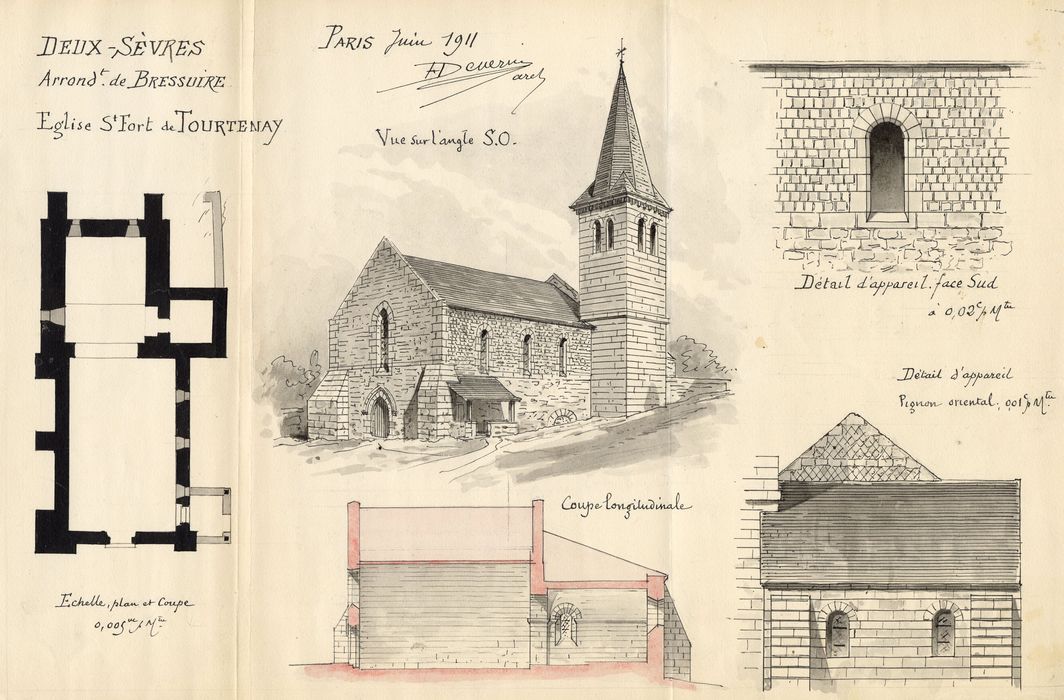 DEUX-SÈVRES
Arrondt. de BRESSUIRE
Eglise St Fort de TOURTENAY
PARIS Juin 1911
Vue sur l'angle S.O.
Détail d'appareil. face Sud
à 0,02c p Mtre
Détail d'appareil
Pignon oriental, 0,01c p Mtre
Coupe longitudinale
Echelle, plan et Coupe